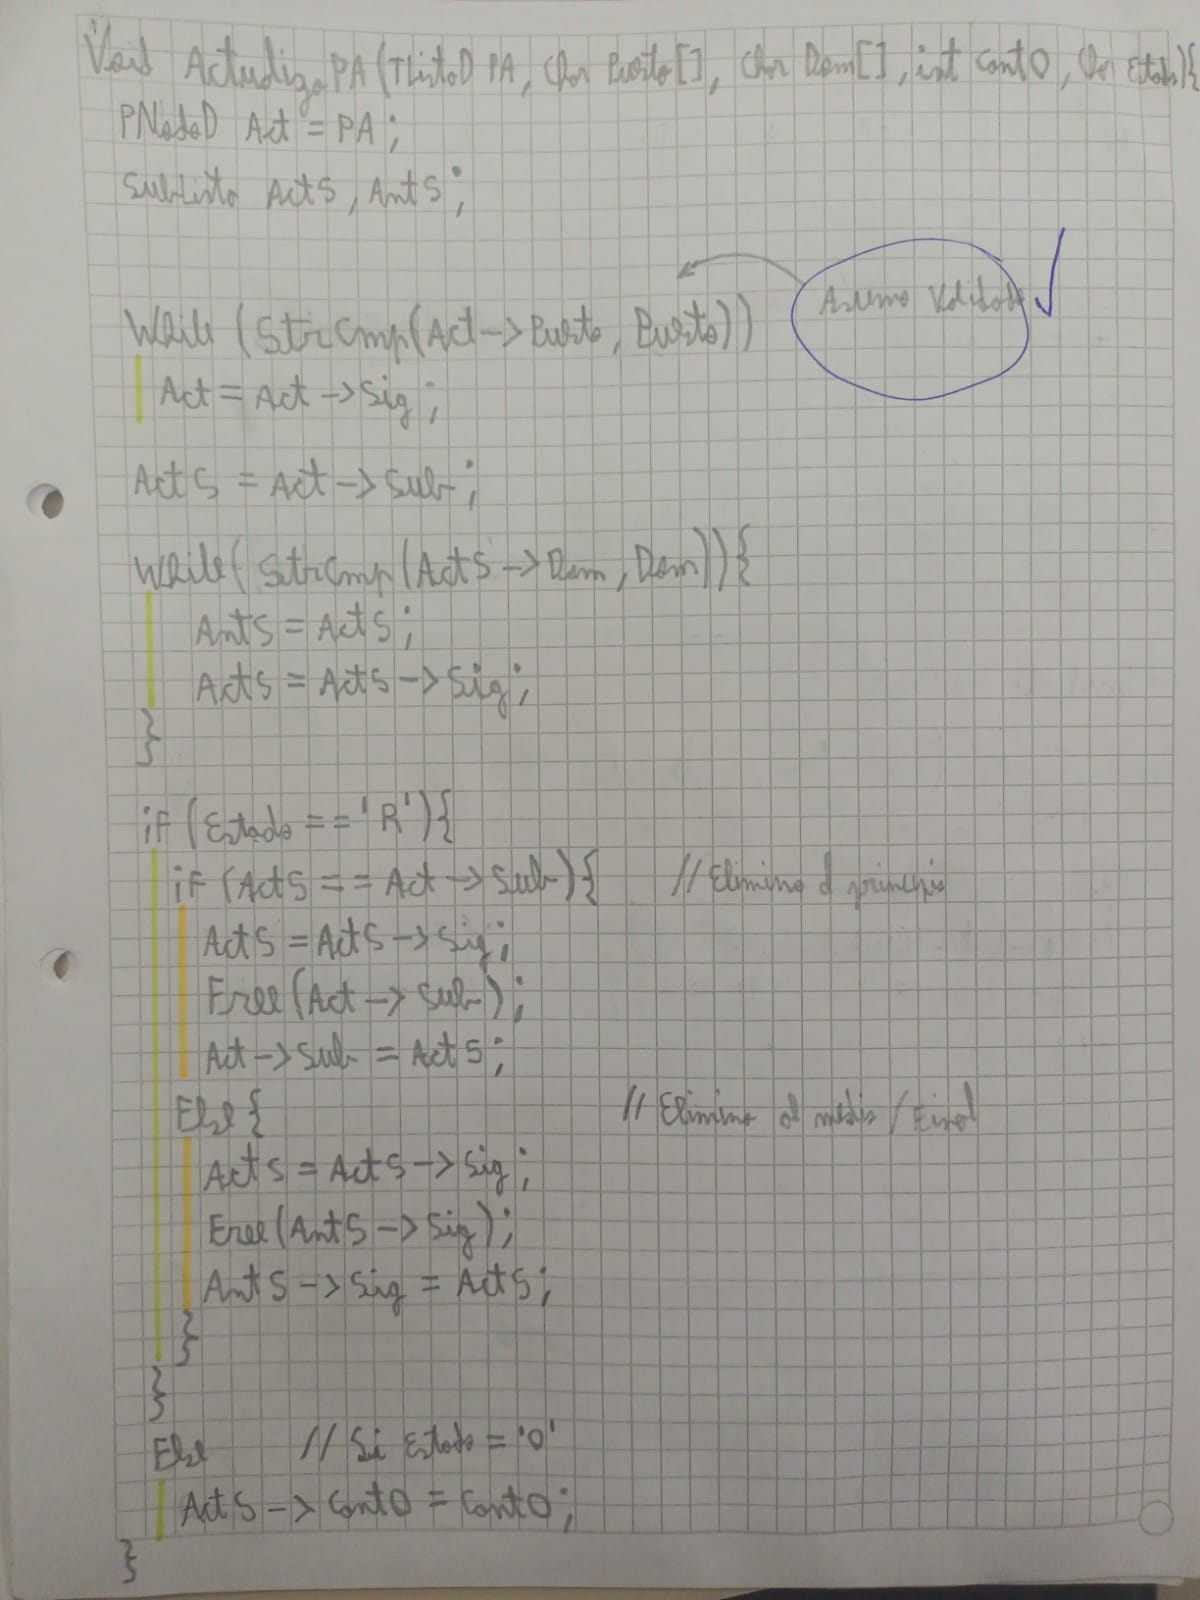 Void ActualizaPA(TListaD PA, Char Puerto[], Char Dom[], int ContO, Char Estado){
PNodoD Act = PA;
SubLista ActS, AntS;
Asumo Validado
While (StrCmp(Act->Puerto, Puerto))
Act = Act->Sig;
ActS = Act->Sub;
While(StrCmp(ActS->Dom, Dom)){
AntS = ActS;
ActS = ActS->Sig;
}
if (Estado == 'R'){
if (ActS == Act->Sub){ // Elimino al principio
ActS = ActS->Sig;
Free(Act->Sub);
Act->Sub = ActS;
Else{ // Elimino al medio / Final
ActS = ActS->Sig;
Free(AntS->Sig);
AntS->Sig = ActS;
}
}
Else // Si Estado = 'O'
ActS->ContO = ContO;
}